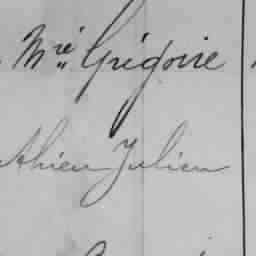 Mré Grégoire
thieu Julien